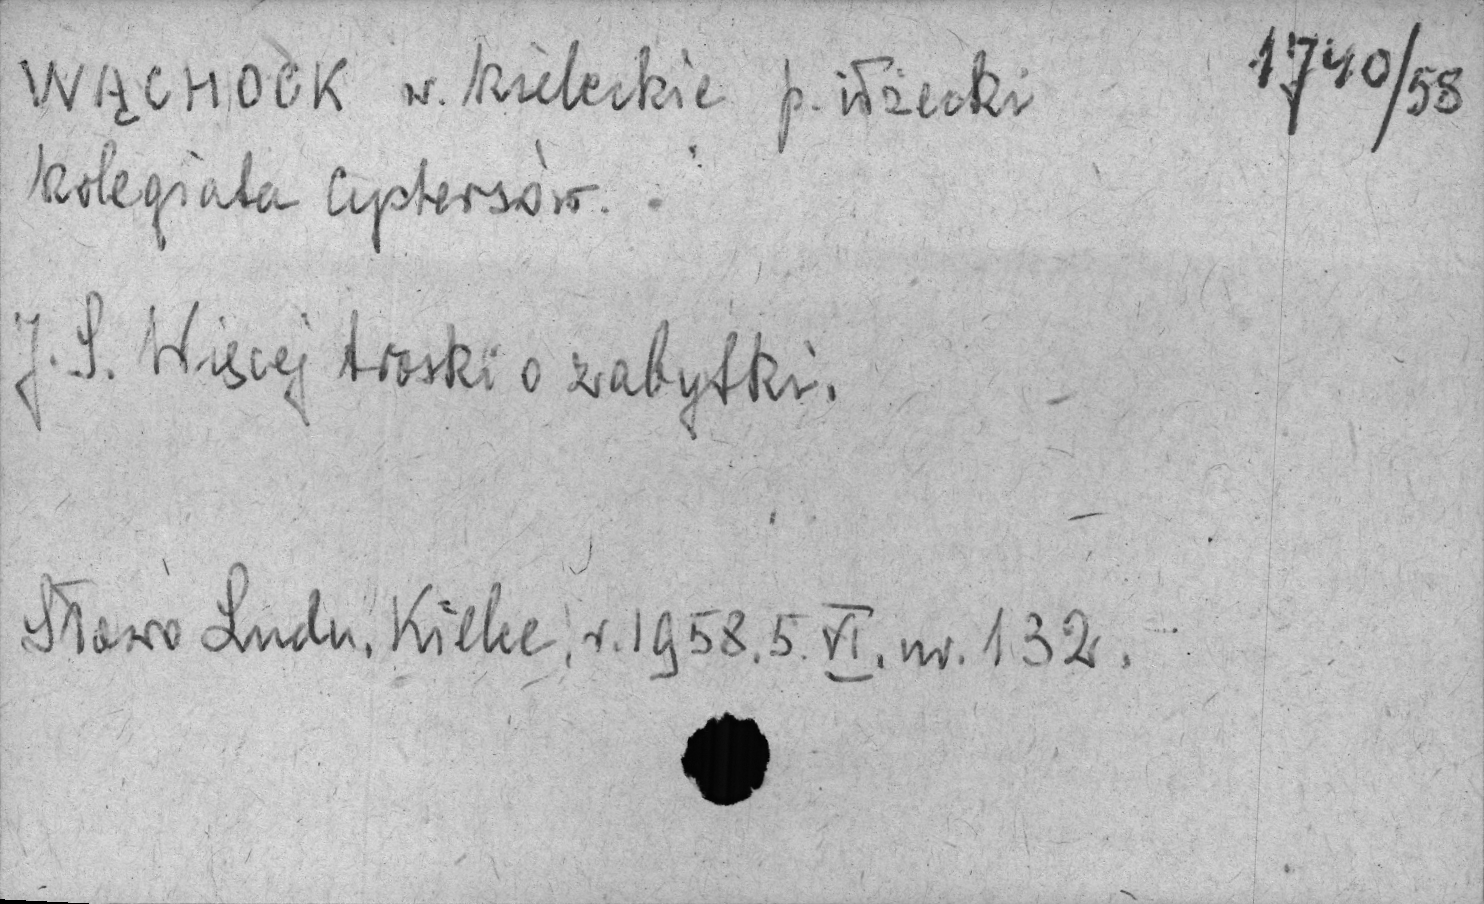 WĄCHOCK w. kieleckie p. iłżecki 1740/58
kolegiata cystersów.
J. S. Więcej troski o zabytki.
Słowo Ludu. Kielce, r. 1958. 5. VI. nr. 132.